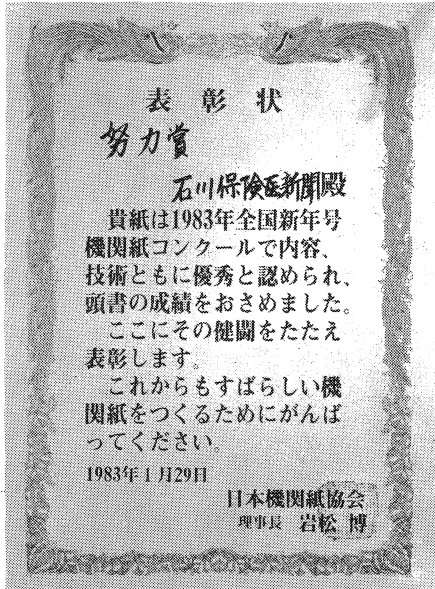 表彰状
努力賞
石川保険医新聞殿
貴紙は1983年全国新年号
機関紙コンクールで内容、
技術ともに優秀と認められ、
頭書の成績をおさめました。
ここにその健闘をたたえ
表彰します。
これからもすばらしい機
関紙をつくるためにがんば
ってください。
1983年1月29日
日本機関紙協会
理事長 岩松 博